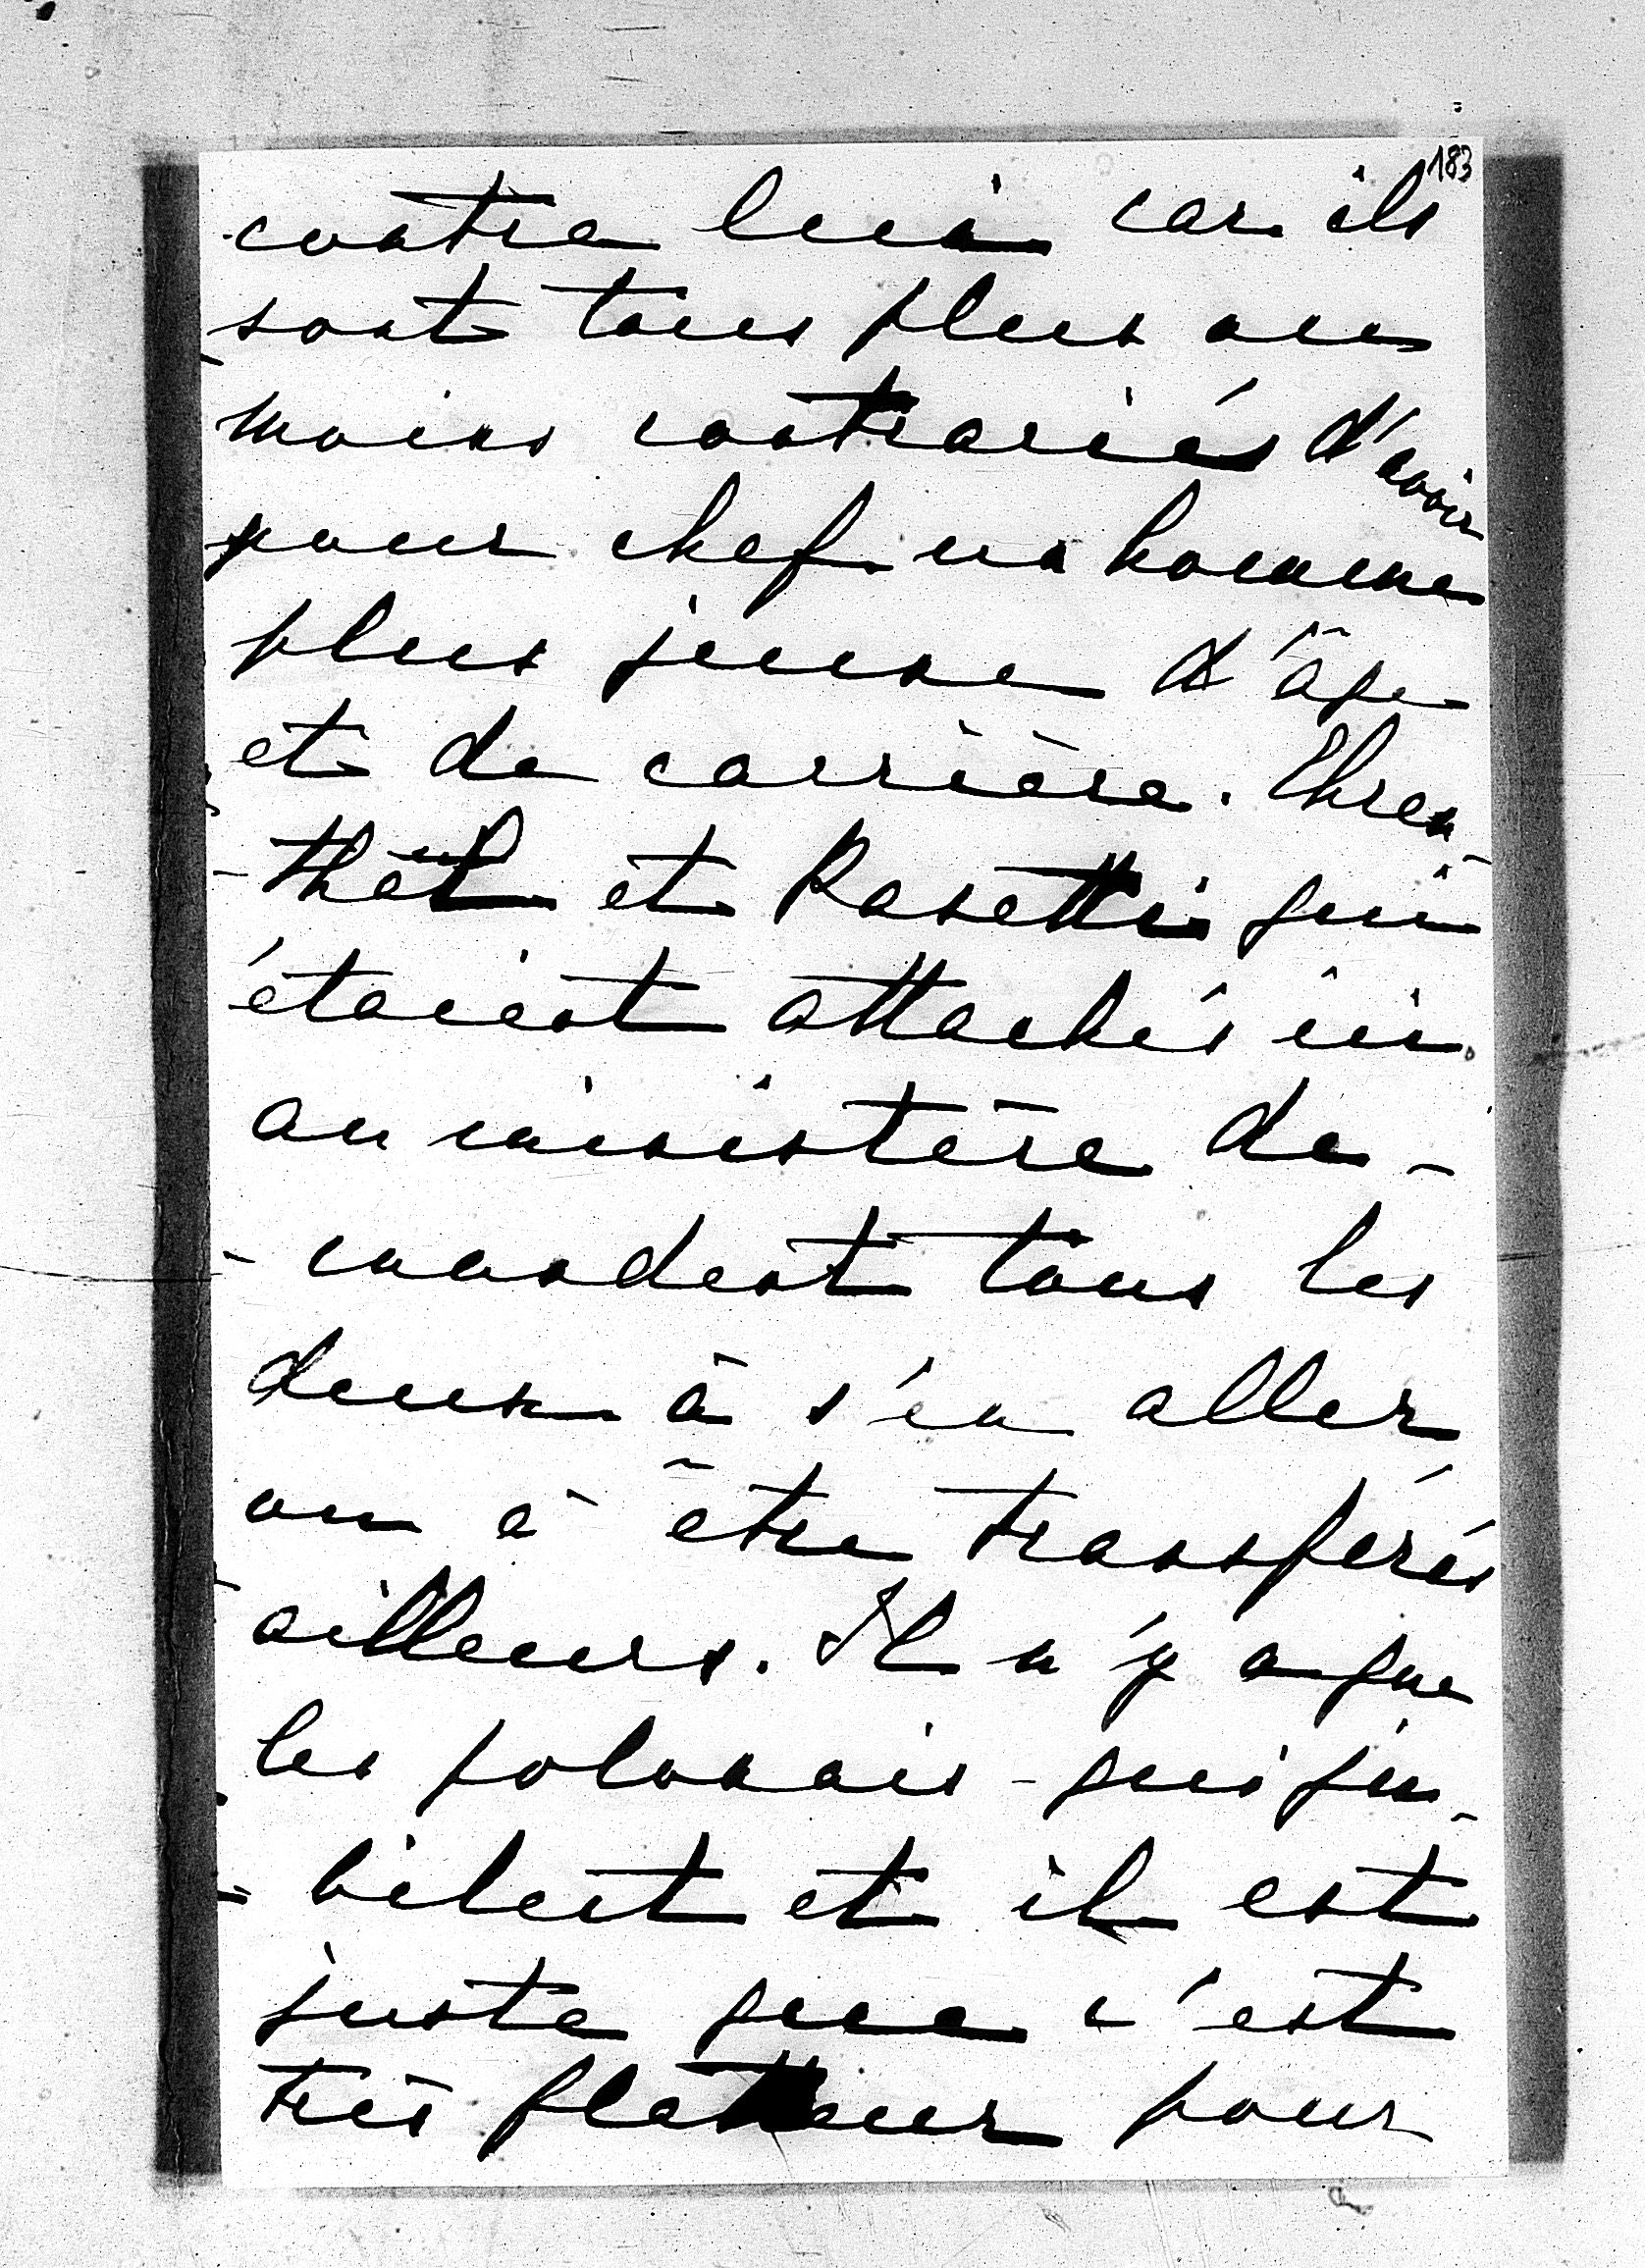 183
contre lui car ils
sont tous plus ou
moins contrariés d'avoir
pour chef un homme
plus jeune d'âge
et de carrière. Ehren-
-thal et Rosetti qui
étaient attachés ici
au ministère de-
-mandent tous les
deux à s'en aller
ou à être transférés
ailleurs. Il n'y a que
les polonais qui ju-
-bilent et il est
juste que c'est
très flatteur pour